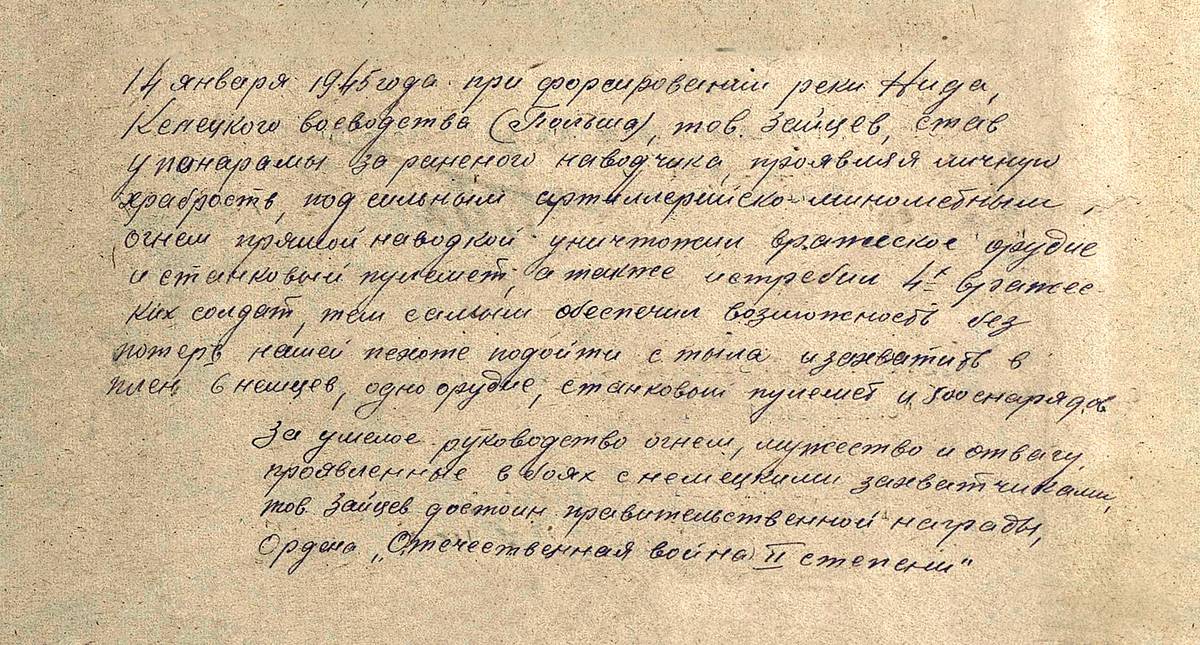 14 января 1945 года при форсировании реки Нида,
Келецкого воеводства (Польша), тов. Зайцев, став
у панарамы за раненого наводчика, проявляя личную
храбрость, под сильным артиллерийско-минометным
огнем прямой наводкой уничтожил вражеское орудие
и станковый пулемет, а также истребил 4х вражес-
ких солдат, тем самым обеспечил возможность без
потерь нашей пехоте подойти с тыла и захватить в
плен 6 немцев, одно орудие, станковый пулемет и 500 снарядов
За умелое руководство огнем, мужество и отвагу,
проявленные в боях с немецкими захватчиками,
тов. Зайцев достоин правительственной награды,
Ордена „Отечественная война II степени"